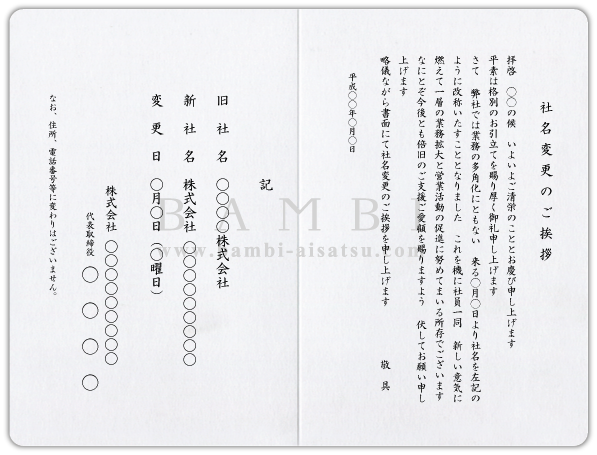 社名変更のご挨拶
拝啓　○○の候　いよいよご清栄のこととお慶び申し上げます
平素は格別のお引立てを賜り厚く御礼申し上げます
さて　弊社では業務の多角化にともない　来る○月○日より社名を左記の
ように改称いたすこととなりました　これを機に社員一同　新しい意気に
燃えて一層の業務拡大と営業活動の促進に努めてまいる所存でございます
なにとぞ今後とも倍旧のご支援ご愛顧を賜りますよう　伏してお願い申し
上げます
略儀ながら書面にて社名変更のご挨拶を申し上げます　敬具
平成○○年○月○日
記
旧社名　○○○○株式会社
新社名　株式会社○○○○○○○○○
変更日　○月○日（○曜日）
株式会社　○○○○○○○○○
代表取締役　○○○○
なお、住所、電話番号等に変わりはございません。
BAMBI
www.bambi-aisatsu.com